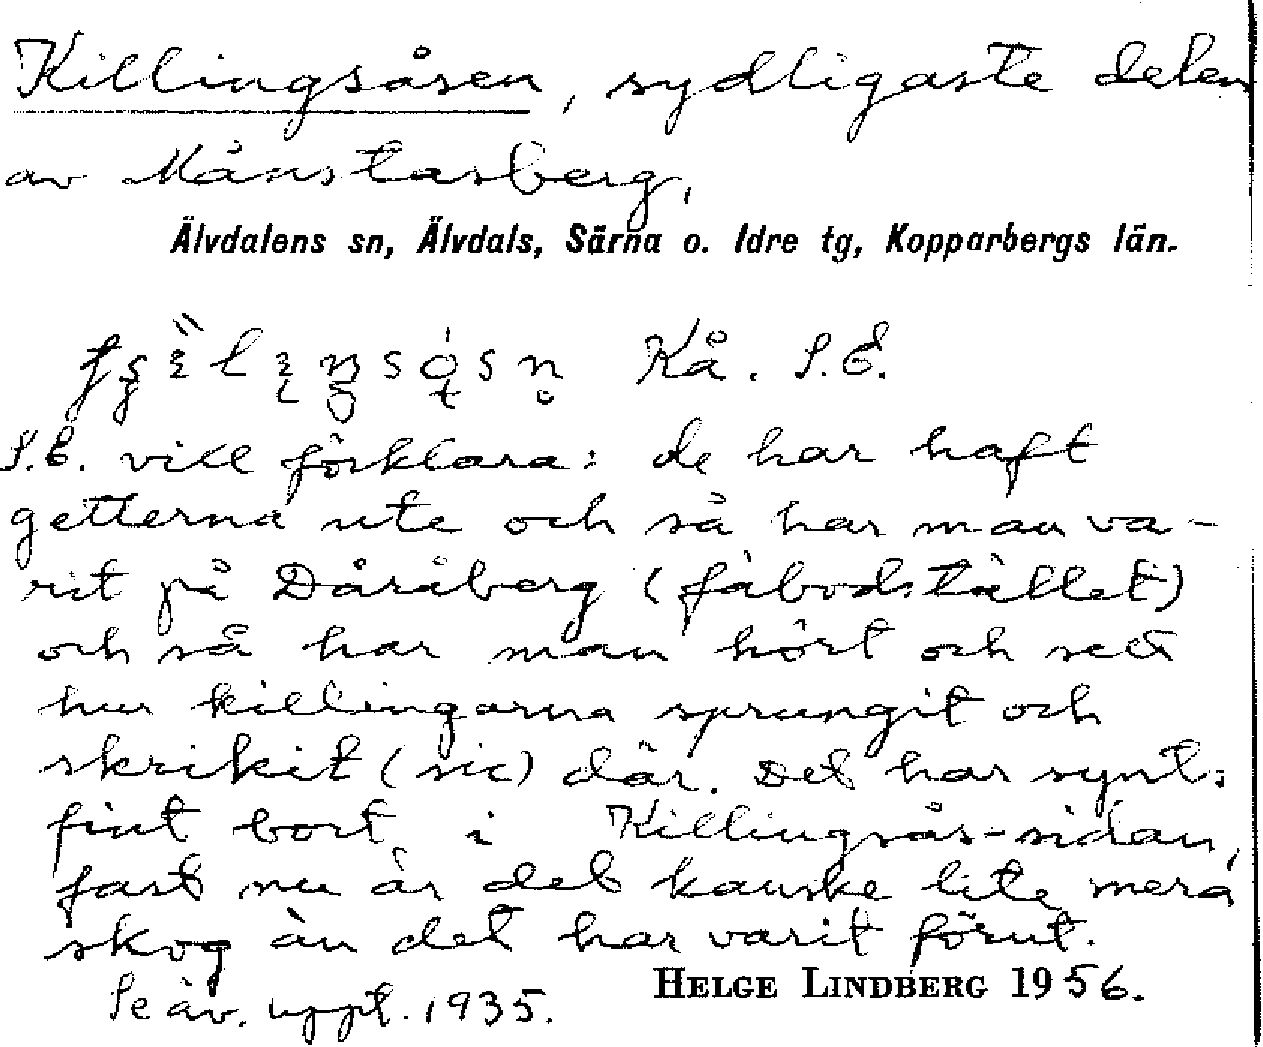 Killingsåsen, sydligaste delen
av Månstasberg,
Älvdalens sn, Älvdals, Särna o. Idre tg, Kopparbergs län.
Kå. S.E.
S.E. vill förklara: de har haft
getterna ute och så har man va-
rit på Dåråberg (fäbodstället)
och så har man hört och sett
hur killingarna sprungit och
skrikit (sic) där. Det har synts
fint bort i Killingsås-sidan,
fast nu är det kanske lite mera
skog än det har varit förut.
Se äv. uppt. 1935.
HELGE LINDBERG 1956.